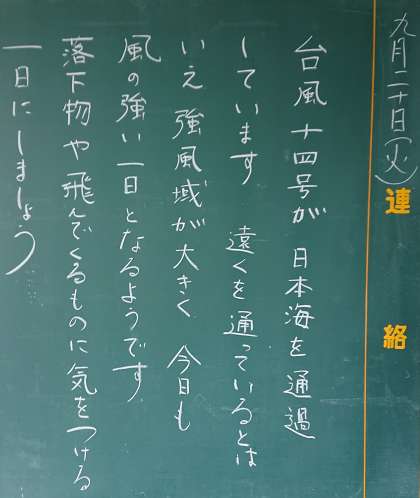 九月二十日(火)
連絡
台風十四号が 日本海を通過
しています 遠くを通っているとは
いえ 強風域が大きく 今日も
風の強い一日となるようです
落下物や飛んでくるものに気をつける
一日にしましょう